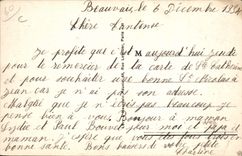 Beauvais, le 6 Décembre
Chère Antonce
Je profite que c'est aujourd'hui jeudi
pour te remercier de la carte de Ste Catherine
et pour souhaiter une bonne St Nicolas à
Jean car je n'ai pas son adresse.
Malgré que je n'écris pas beaucoup je
pense bien à vous. Bonjour à maman
Lydie et Paul Bonnet pour moi et papa et
maman. J'espère que vous
bonne santé. Bons baisers de votre petite